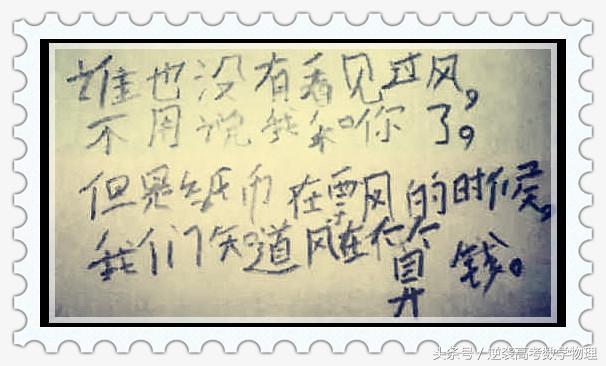 谁也没有看见过风，
不用说我和你了。
但是纸币在飘的时候，
我们知道风在算钱。
头条号/逆袭高考数学物理